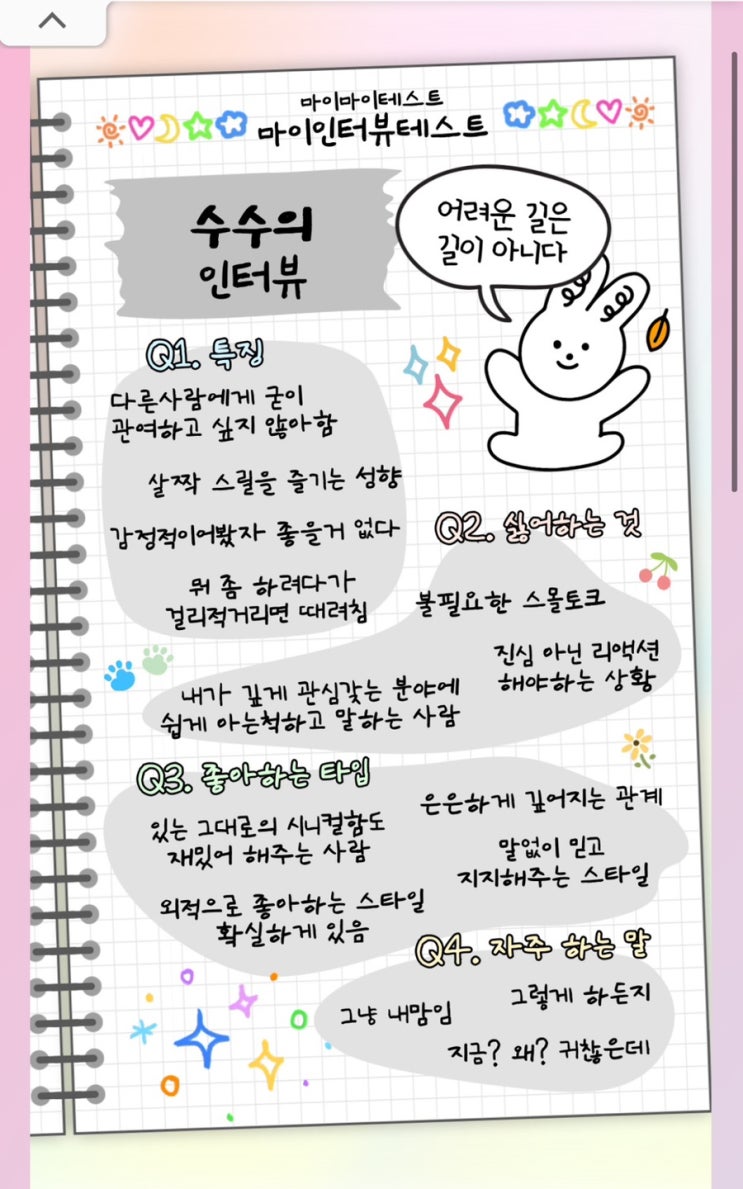 마이마이테스트
마이인터뷰테스트
수수의
인터뷰
어려운 길은
길이 아니다
Q1. 특징
다른사람에게 굳이
관여하고 싶지 않아함
살짝 스릴을 즐기는 성향
감정적이어봤자 좋을거 없다
뭐 좀 하려다가
걸리적거리면 때려침
Q2. 싫어하는 것
불필요한 스몰토크
진심 아닌 리액션
해야하는 상황
내가 깊게 관심갖는 분야에
쉽게 아는척하고 말하는 사람
Q3. 좋아하는 타입
은은하게 깊어지는 관계
있는 그대로의 시니컬함도
재밌어 해주는 사람
말없이 믿고
지지해주는 스타일
외적으로 좋아하는 스타일
확실하게 있음
Q4. 자주 하는 말
그렇게 하든지
그냥 내맘임
지금? 왜? 귀찮은데